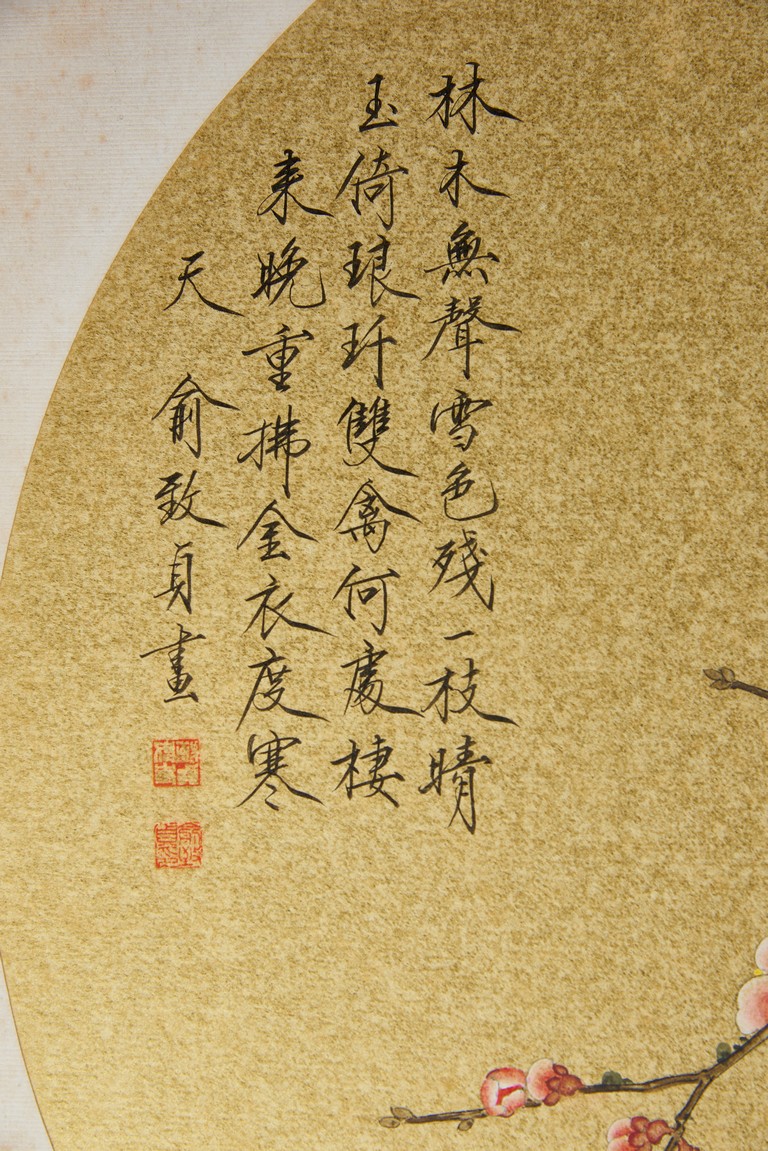 林木無聲雪色殘一枝晴
玉倚琅玕雙禽何處棲
来晚重拂金衣度寒
天 俞致貞畫